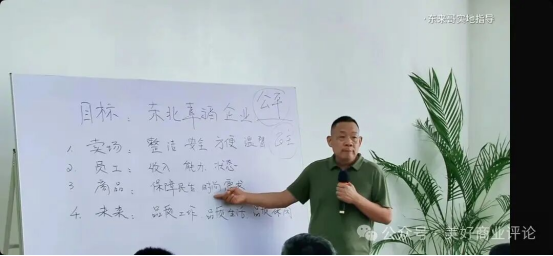 ·东来哥实地指导
目标：东北幸福企业 公平
1. 卖场：整洁 安全 方便
2. 员工：收入 能力 状态
3. 商品：保障民生 时尚
4. 未来：品质工作 品质生活
公众号·美好商业评论